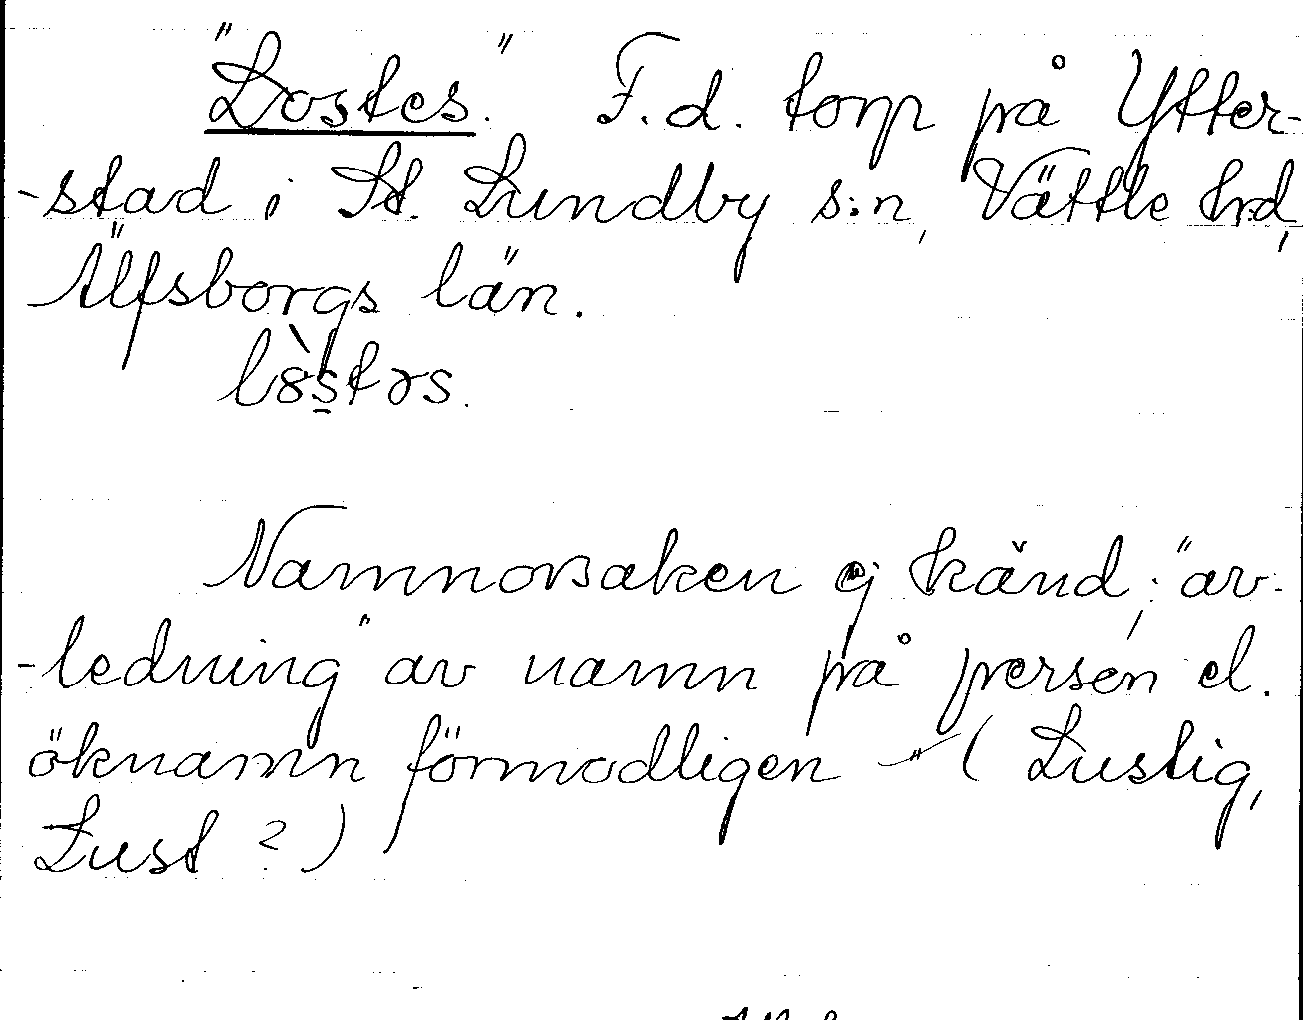 "Lostes." F.d. torp på Ytter-
-stad i St. Lundby s:n, Vättle hrd,
Älfsborgs län.
lòstəs.
Namnorsaken ej känd; "av-
-ledning" av namn på person el.
öknamn förmodligen - (Lustig,
Lust ?)